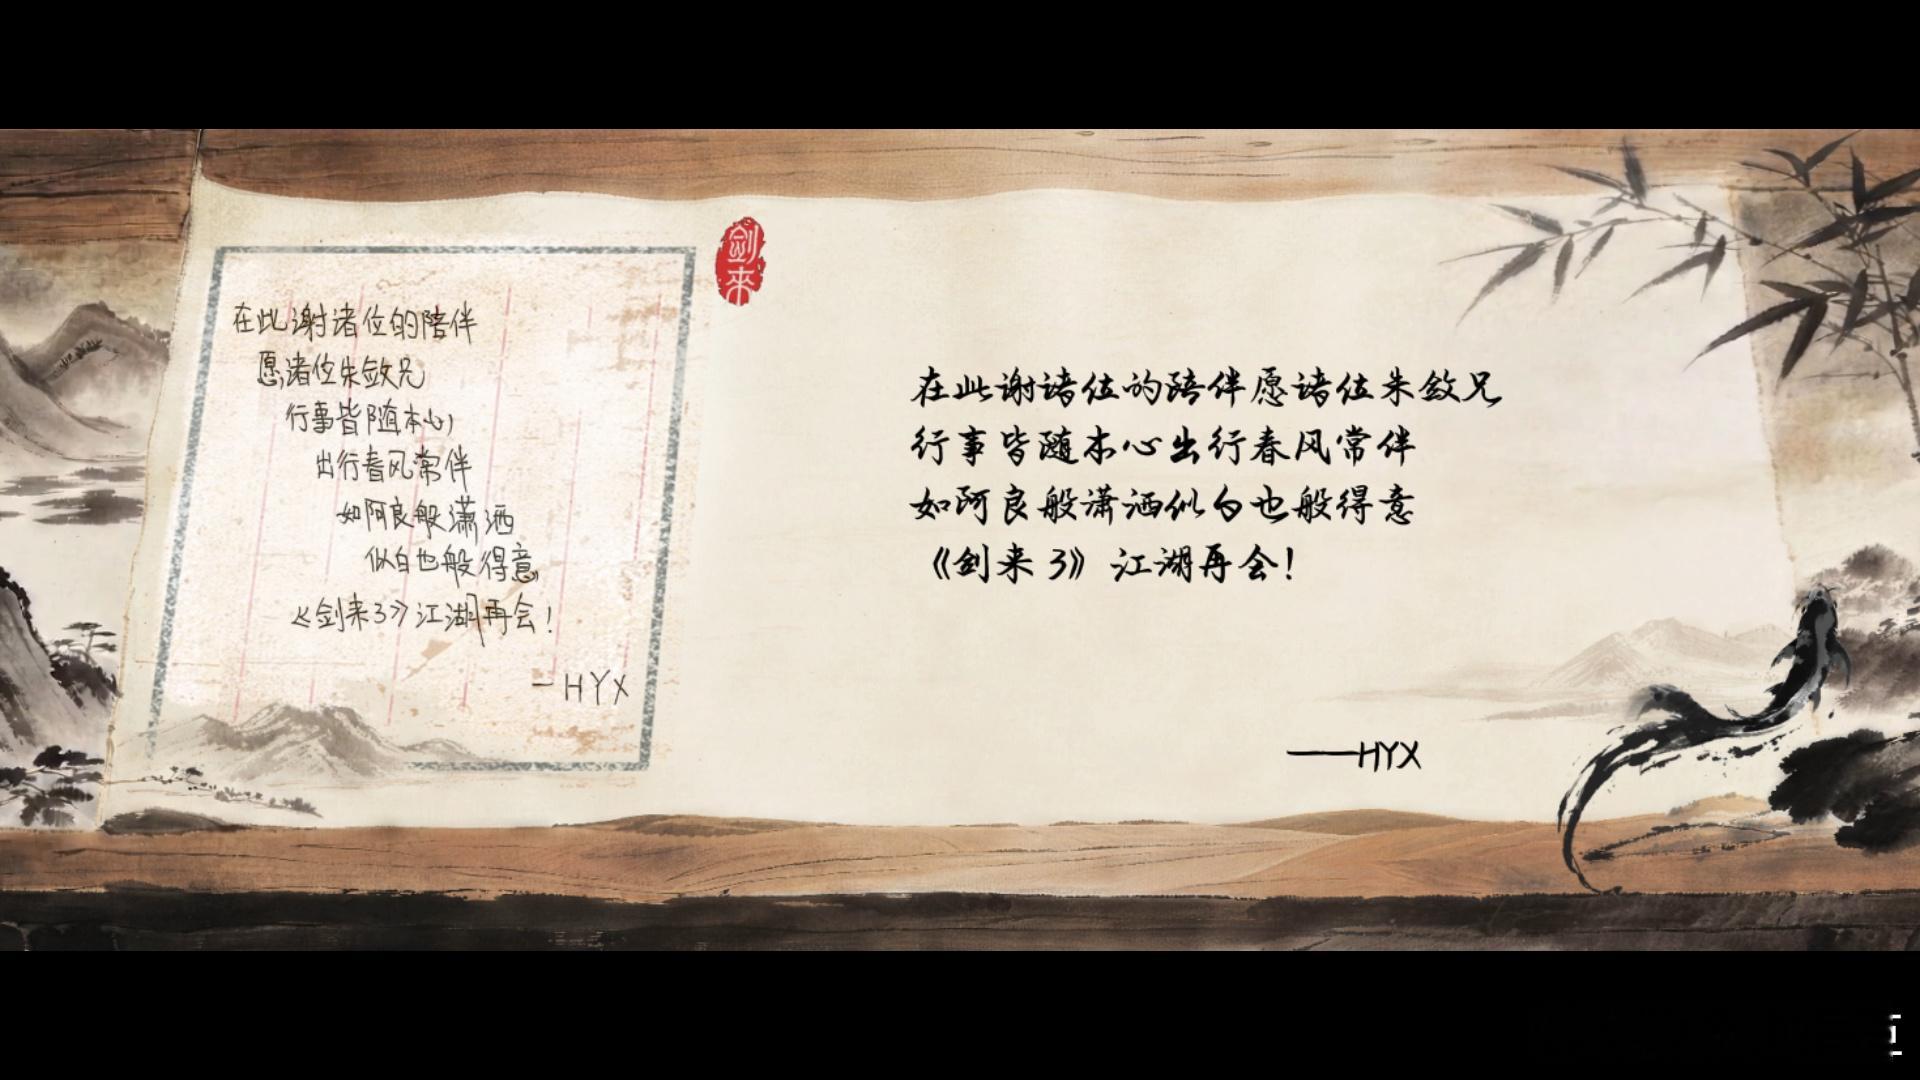 在此谢诸位的陪伴
愿诸位朱敛兄
行事皆随本心,
出行春风常伴
如阿良般潇洒
似白也般得意,
《剑来3》江湖再会!
-HYX
剑来
在此谢诸位的陪伴愿诸位朱敛兄
行事皆随本心出行春风常伴
如阿良般潇洒似白也般得意
《剑来3》江湖再会!
——HYX